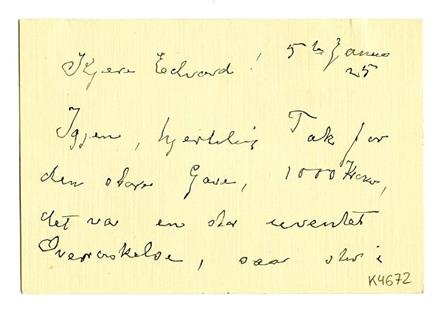 Kjere Edvard! 5te Janua
25
Igjen, hjertelig Tak for
den store Gave, 1000 Kroner,
det var en stor uventet
Overraskelse, saa stor i
K4672